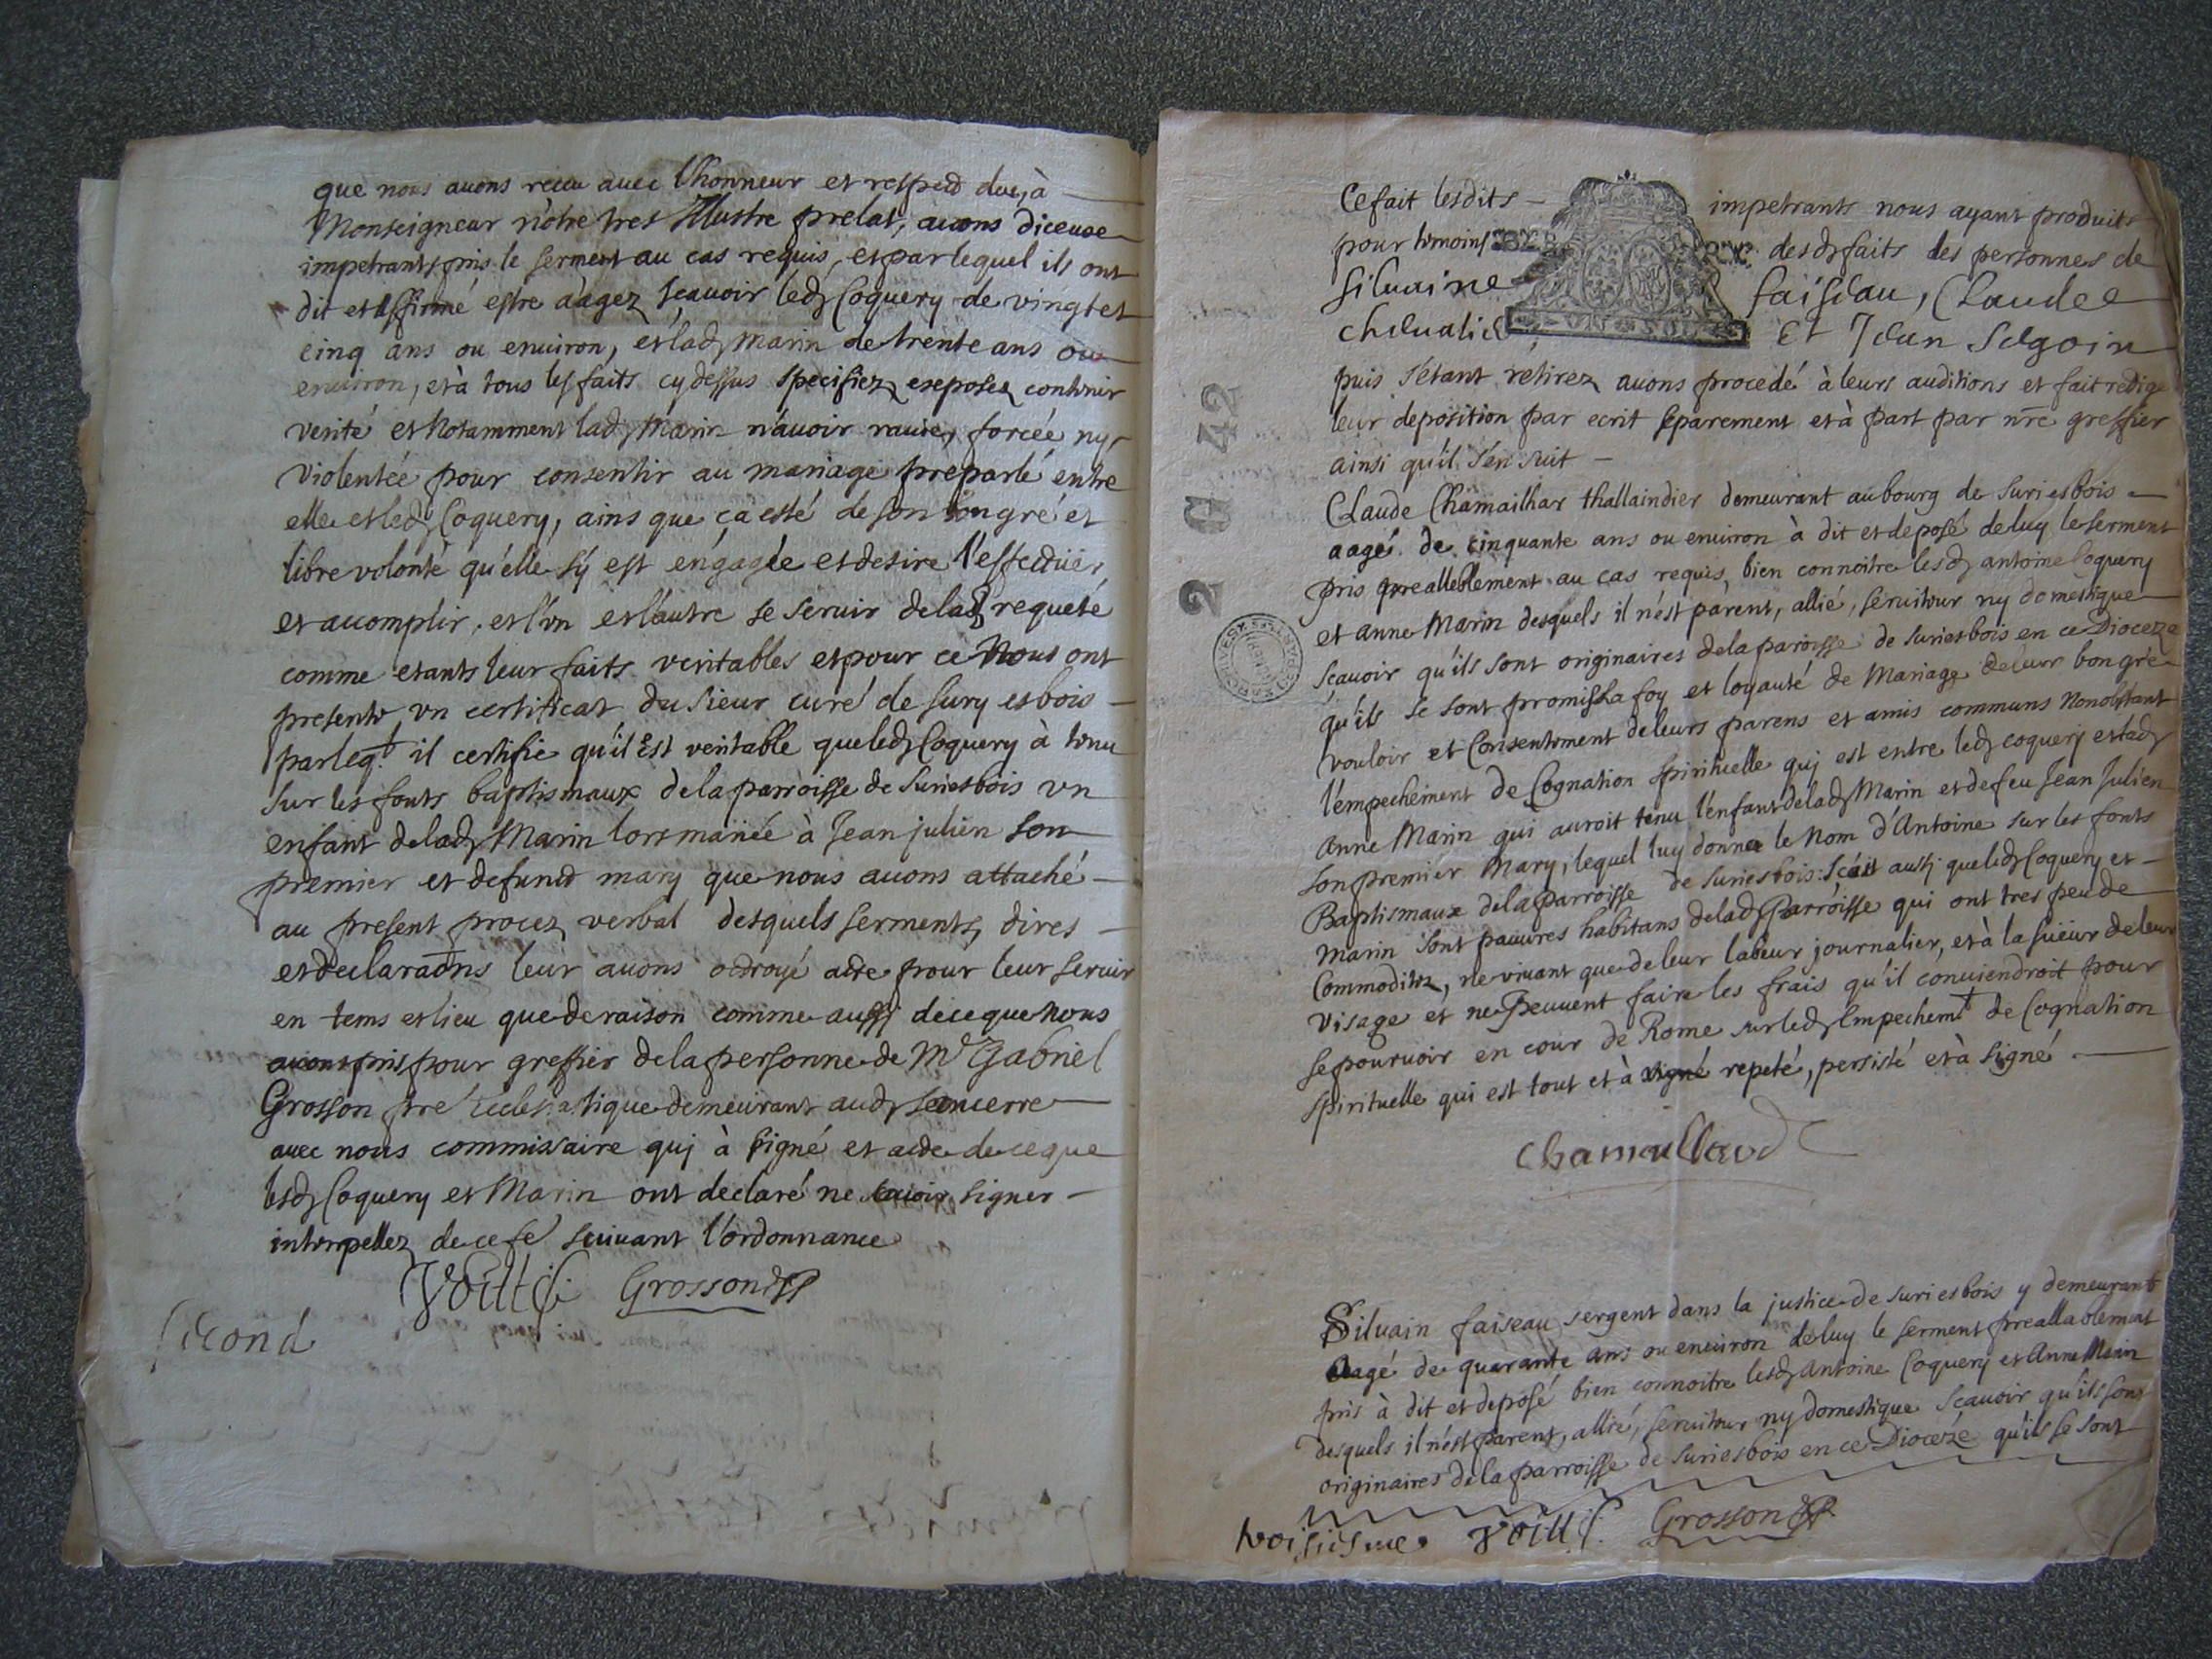 que nous auons receu auec lhonneur et respect due, à
Monseigneur nôtre tres Illustre prelat, auons diceuxe
impetrants pris le serment au cas requis, et par lequel ils ont
dit et affirmé estre aagez sçauoir led Coquery de vingt et
cinq ans ou enuiron, et lad Marin de trente ans ou
enuiron, et à tous les faits cy dessus specifiez exposez contenir
verité et notamment lad Marin n'auoir rauie, forcée ny
violentée pour consentir au mariage preparlé entre
elle et led Coquery, ains que ça esté de son bon gré et
libre volonté qu'elle s'y est engagée et desire l'effectuer,
et accomplir, et l'un et l'autre se seruir de lad requeté
comme etants leur faits veritables et pour ce Nous ont
presenté vn certificat du Sieur curé de Sury es bois
par leql il certifie qu'il est veritable que led Coquery à tenu
sur les fonts baptismaux de la parroisse de Suriesbois vn
enfant de lad Marin lors mariée à Jean julien son
premier et defunct mary que nous auons attaché
au present procez verbal desquels serments, dires
et declaraons leur auons octroyé acte pour leur seruir
en tems et lieu que de raison comme aussj de ce que Nous
auons pris pour greffier de la personne de Me Gabriel
Grosson pre Eclesiastique demeurant aud Sancerre
auec nous commissaire quj à signé et acte de ce que
lesd Coquery et Marin ont declaré ne sauoir signer
interpellez de ce fe suiuant l'ordonnance
Grosson
second
Ce fait lesdits impetrants nous ayant produits
pour temoins desd faits les personnes de
Siluaine faiseau, Claude
cheualie Et Jean Selgoin
puis s'étant retirez auons procedé à leurs auditions et fait redige
leur deposition par ecrit separement et à part par nre greffier
ainsi qu'il s'en suit
2 G 42
Claude Chamailhar thallaindier demeurant au bourg de Suriesbois
aagé de cinquante ans ou enuiron à dit et deposé de luy le serment
pris prealleblement au cas requis, bien connoitre lesd antoine Coquery
et anne Marin desquels il n'est parent, allié, seruiteur ny domestique
sçauoir qu'ils sont originaires de la paroisse de Suriesbois en ce Dioceze
qu'ils se sont promis La foy et loyauté de Mariage de leur bon gré
vouloir et Consentement de leurs parens et amis communs Nonobstant
l'empechement de Cognation spirituelle quj est entre led coquery et lad
Anne Marin qui auroit tenu l'enfant de lad Marin et de feu Jean Julien
son premier Mary, lequel luy donna le Nom d'Antoine sur les fonts
Baptismaux de la parroisse de Suriesbois: sçait aussj que led Coquery et
Marin sont pauures habitans de lad Parroisse qui ont tres peu de
Commoditez, ne viuant que de leur labeur journalier, et à la sueur de leur
visage et ne Peuuent faire les frais qu'il conuiendroit pour
se pouruoir en cour de Rome sur led Empechemt de Cognation
spirituelle qui est tout et à signé repeté, persisté et à signé
Chamaillard
Siluain faiseau sergent dans la justice de Suriesbois y demeurant
aagé de quarante ans ou enuiron de luy le serment preallablement
pris à dit et deposé bien connoitre lesd Antoine Coquery et Anne Marin
desquels il n'est parent, allié, seruiteur ny domestique sçauoir qu'ils sont
originaires de la parroisse de Suriesbois en ce Dioceze qu'ils se sont
troisiesme Grosson